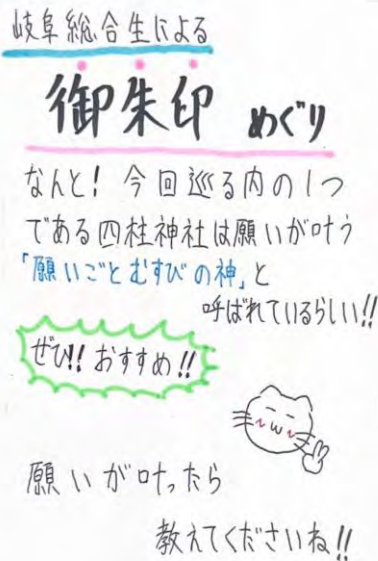 岐阜総合生による
御朱印 めぐり
なんと! 今回巡る内の1つ
である四柱神社は願いが叶う
「願いごとむすびの神」と
呼ばれているらしい!!
ぜひ!! おすすめ!!
願いが叶ったら
教えてくださいね!!